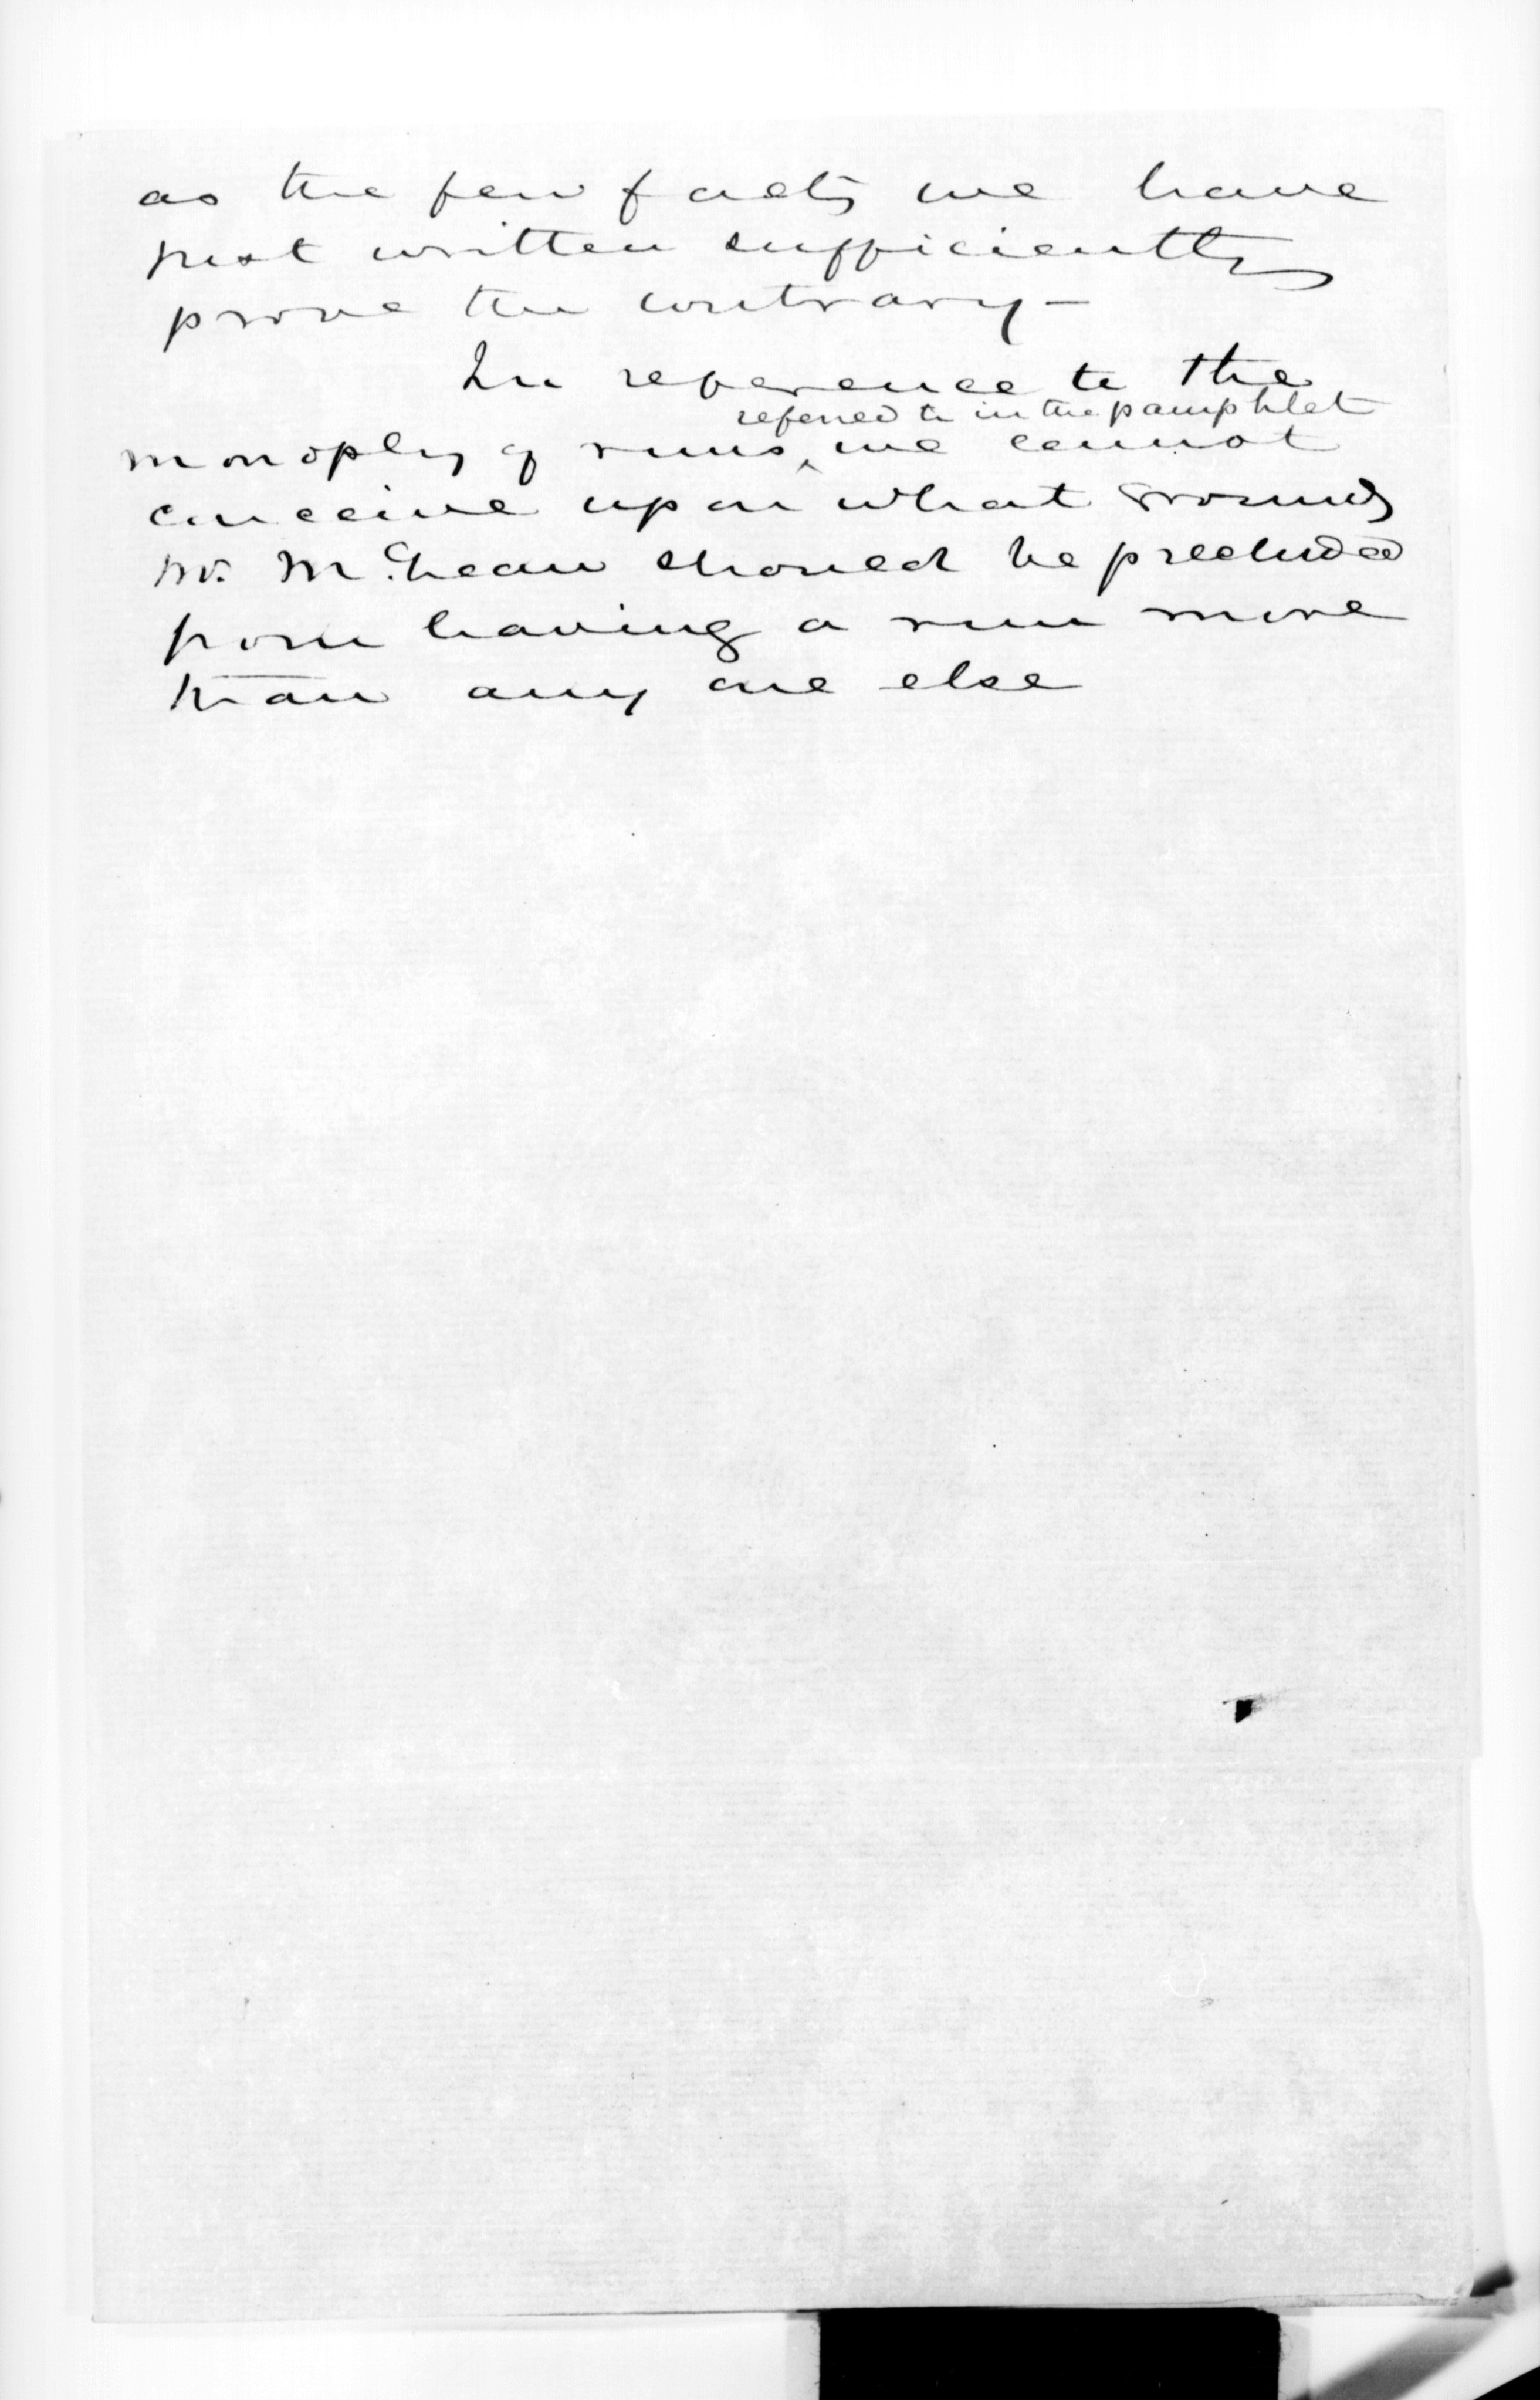 as the few facts we have
just written sufficiently
prove the contrary —
In reference to the
referred to in the pamphlet
monoply of runs ^ we cannot
conceive upon what grounds
Mr. McLean should be precluded
from having a run more
than any one else